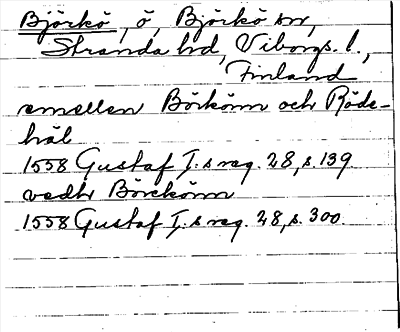 Björkö, ö, Björkö sn,
Stranda hd, Viborgs l.,
Finland
emellen Börkönn och Röde-
häl
1558 Gustaf I:s reg. 28, s. 139.
vedhr Börckönn
1558 Gustaf I:s reg. 28, s. 300.